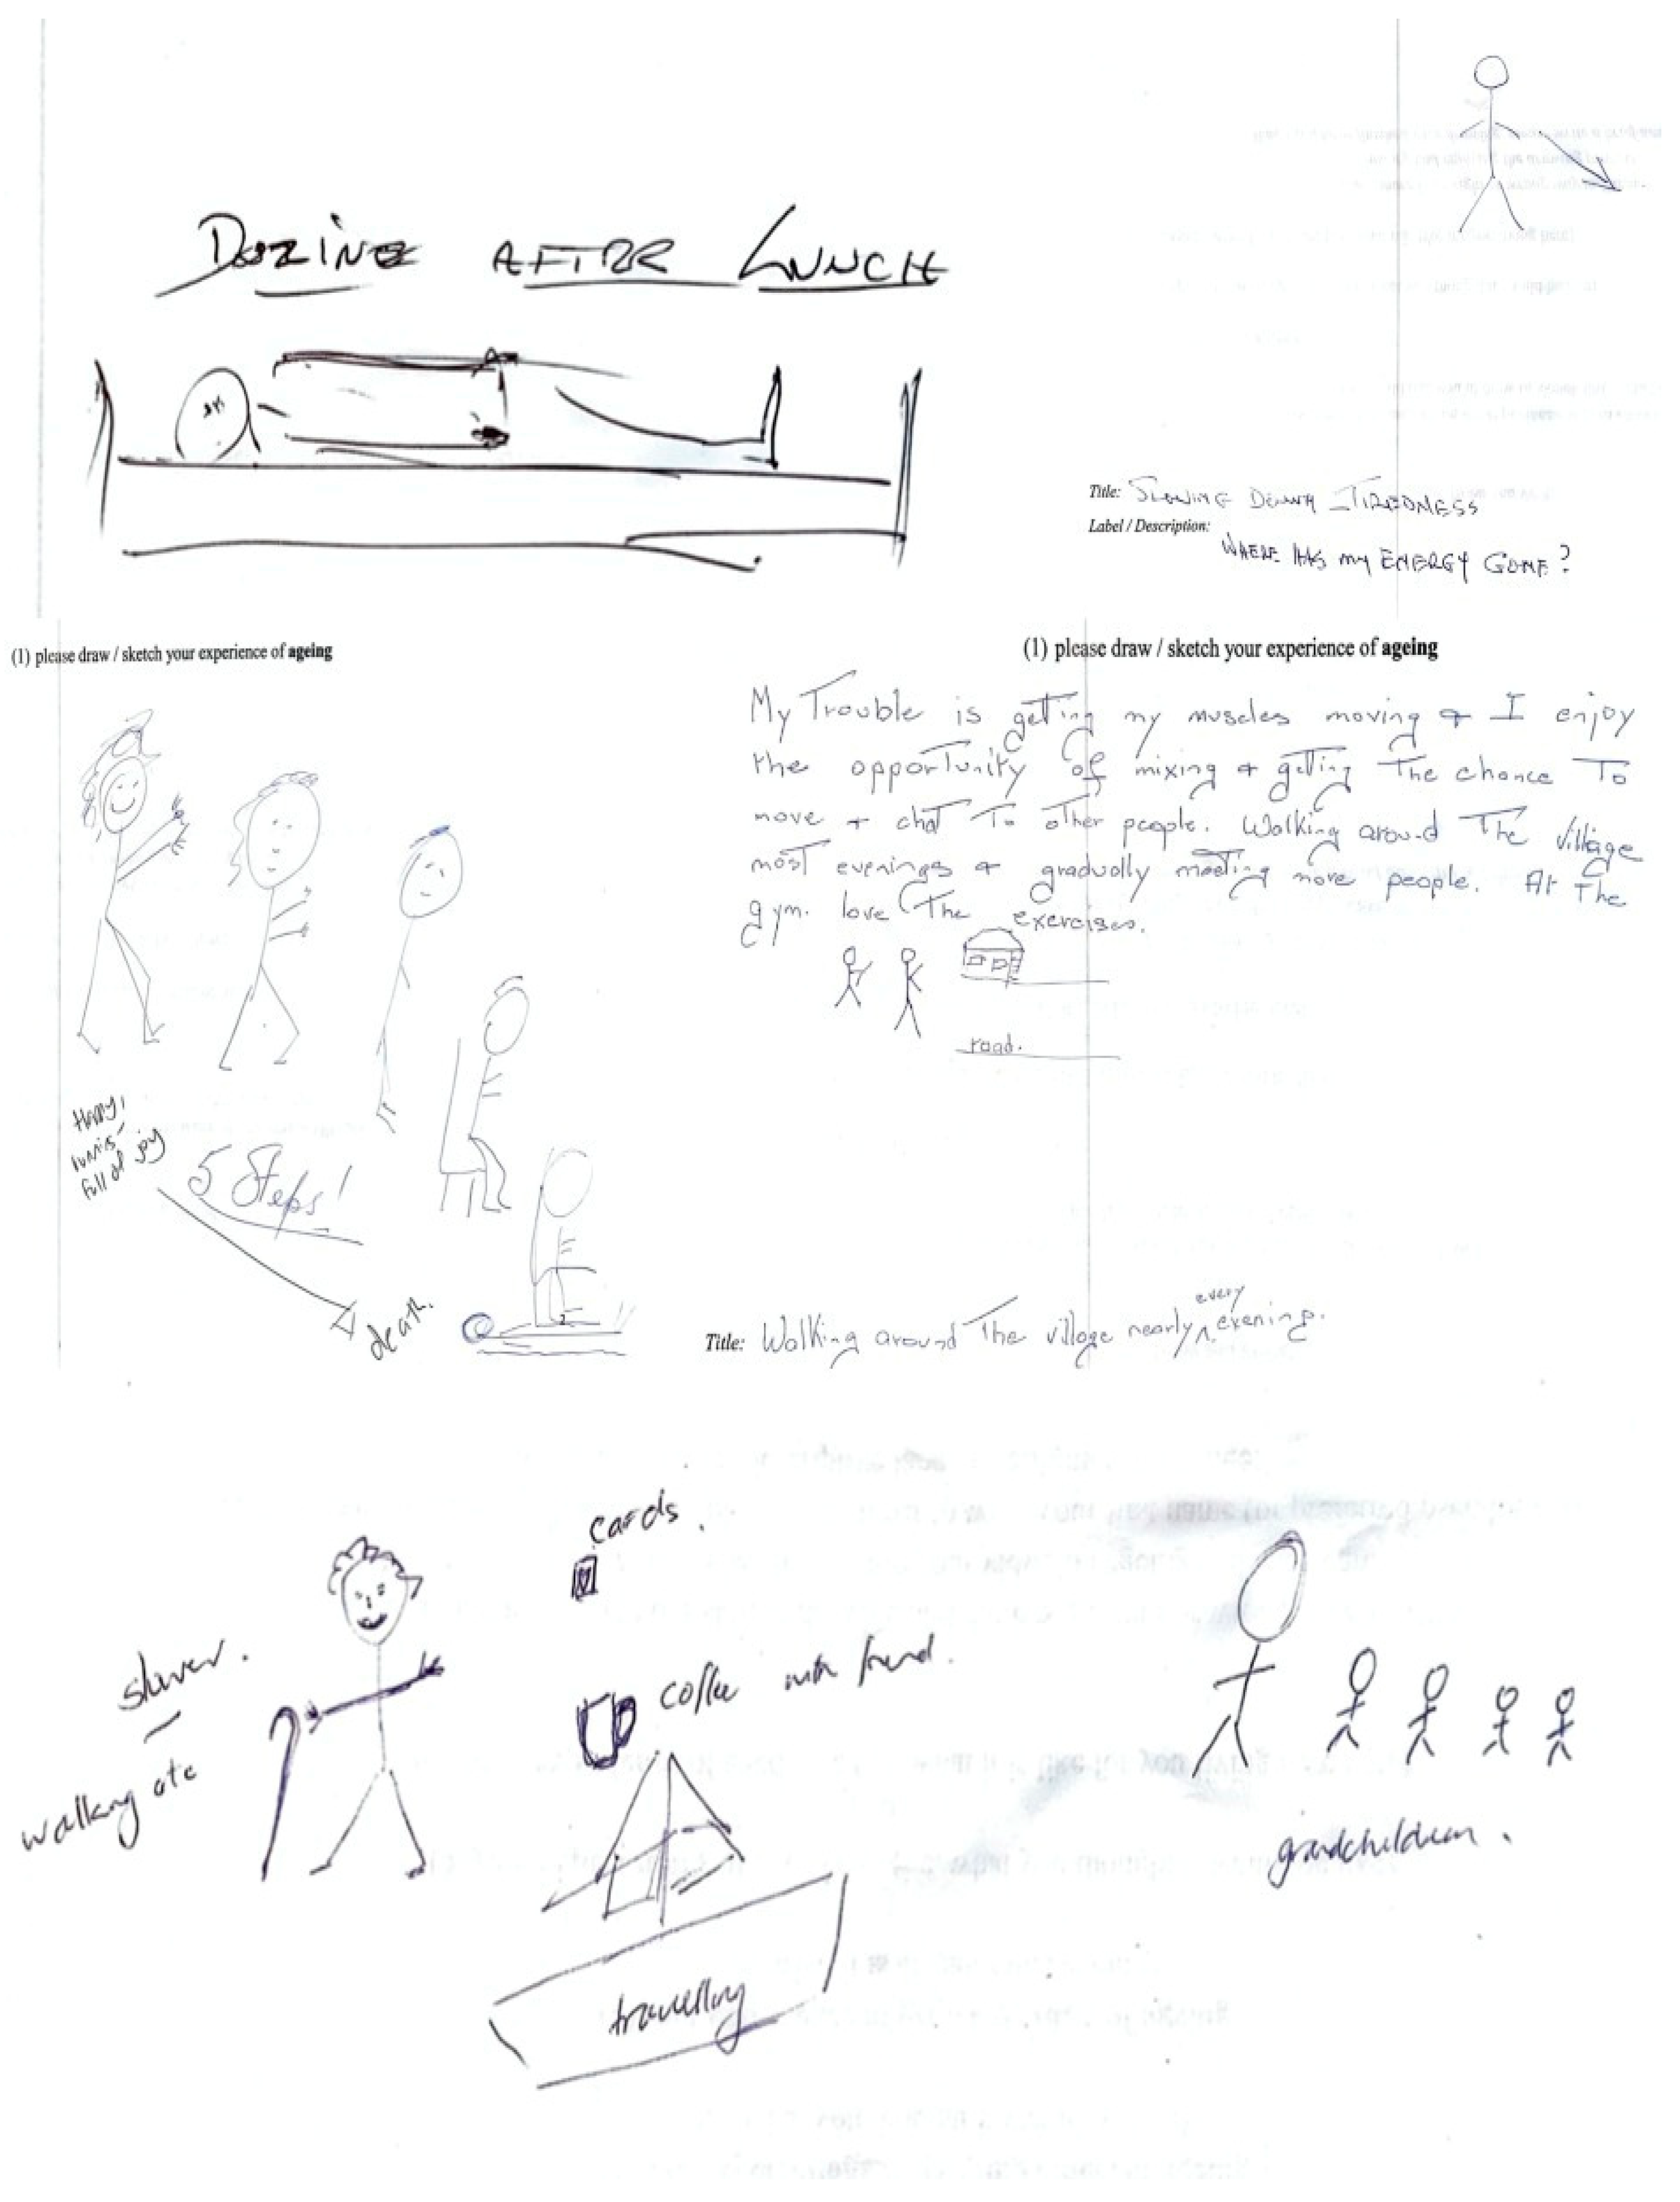 DOZING AFTER LUNCH
Title: SLOWING DOWN - TIREDNESS
Label / Description:
WHERE HAS MY ENERGY GONE?
(1) please draw / sketch your experience of ageing
Happy,
full of joy
5 Steps!
death.
(1) please draw / sketch your experience of ageing
My Trouble is getting my muscles moving & I enjoy
the opportunity of mixing & getting The chance To
move + chat To other people. Walking around The village
most evenings & gradually meeting more people. At The
gym. love The exercises.
road.
Title: Walking around The village nearly every evening.
cards.
slower.
coffee with friend.
walking etc
grandchildren.
travelling